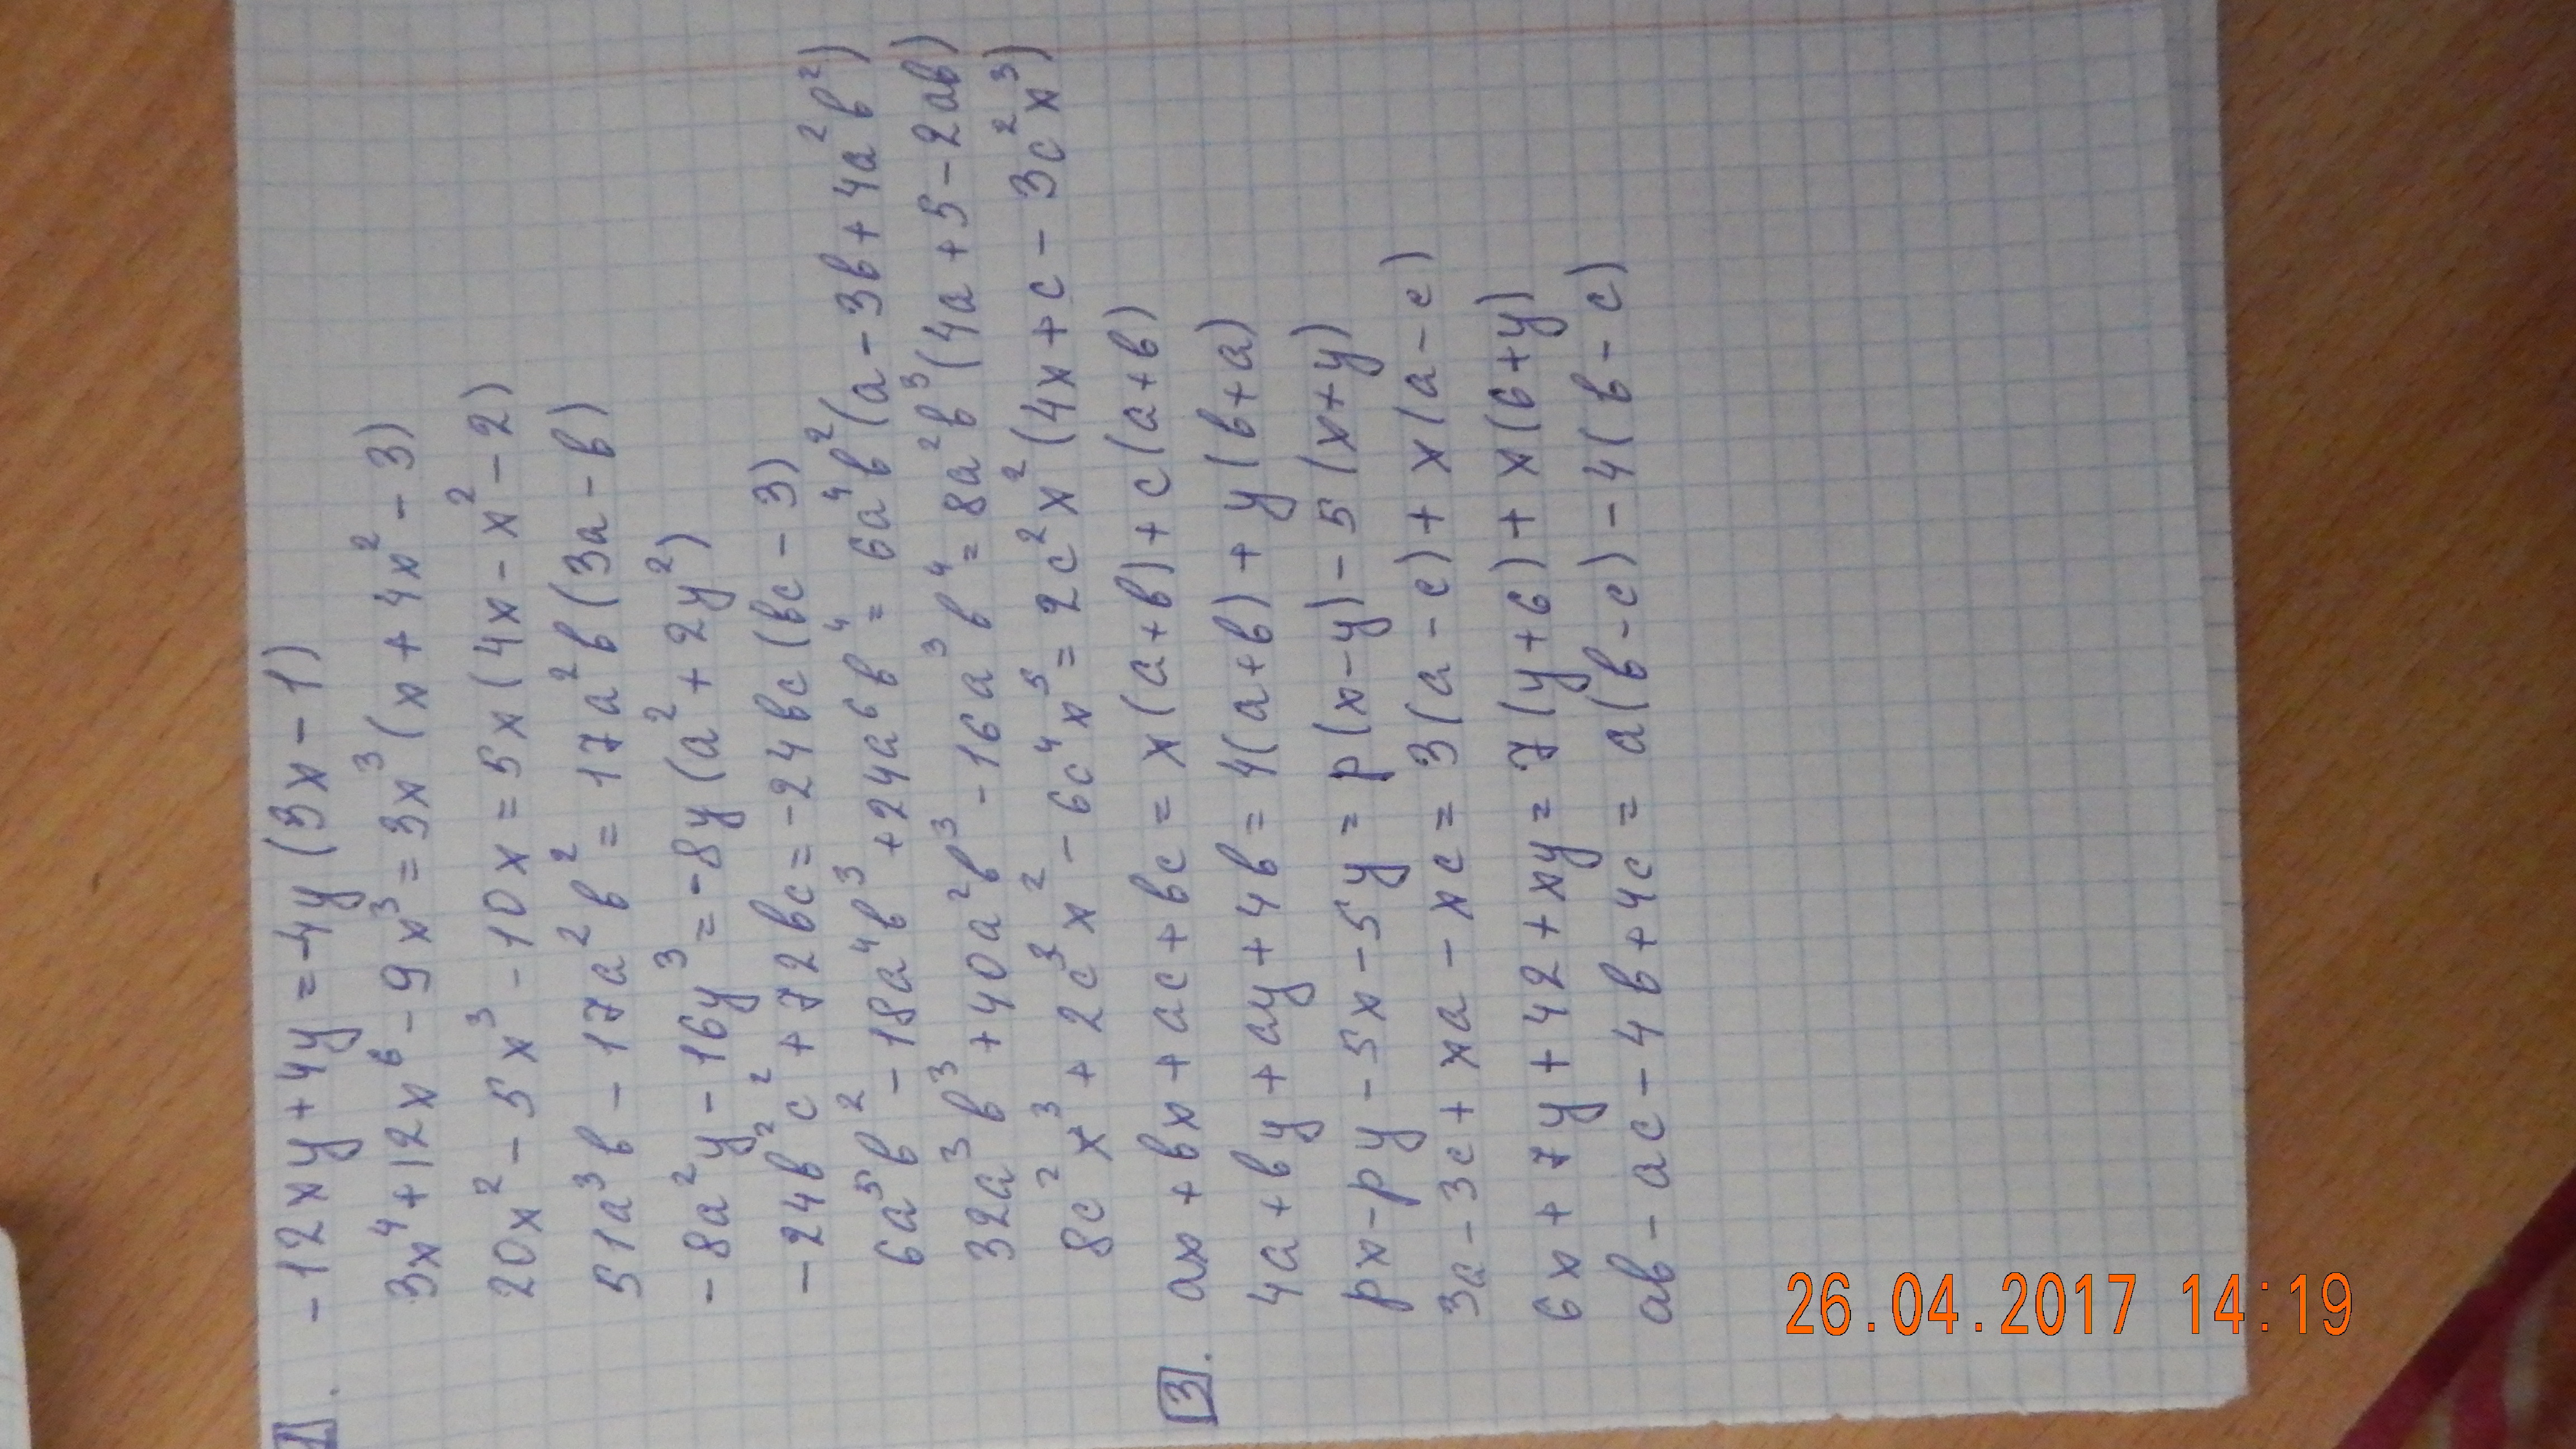 1. -12xy+4y=-4y(3x-1)
3x⁴+12x⁶-9x³=3x³(x+4x²-3)
20x²-5x³-10x=5x(4x-x²-2)
51a³в-17a²в²=17a²в(3a-в)
-8a²y-16y³=-8y(a²+2y²)
-24в²c²+72вc=-24вc(вc-3)
6a⁵в²-18a⁴в³+24a⁶в⁴=6a⁴в²(a-3в+4a²в²)
32a³в³+40a²в³-16a³в⁴=8a²в³(4a+5-2aв)
8c²x³+2c³x²-6c⁴x⁵=2c²x²(4x+c-3c²x³)
3. ax+вx+ac+вc=x(a+в)+c(a+в)
4a+вy+ay+4в=4(a+в)+y(в+a)
px-py-5x-5y=p(x-y)-5(x+y)
3a-3c+xa-xc=3(a-c)+x(a-c)
6x+7y+42+xy=7(y+6)+x(6+y)
aв-ac-4в+4c=a(в-c)-4(в-c)
26.04.2017 14:19